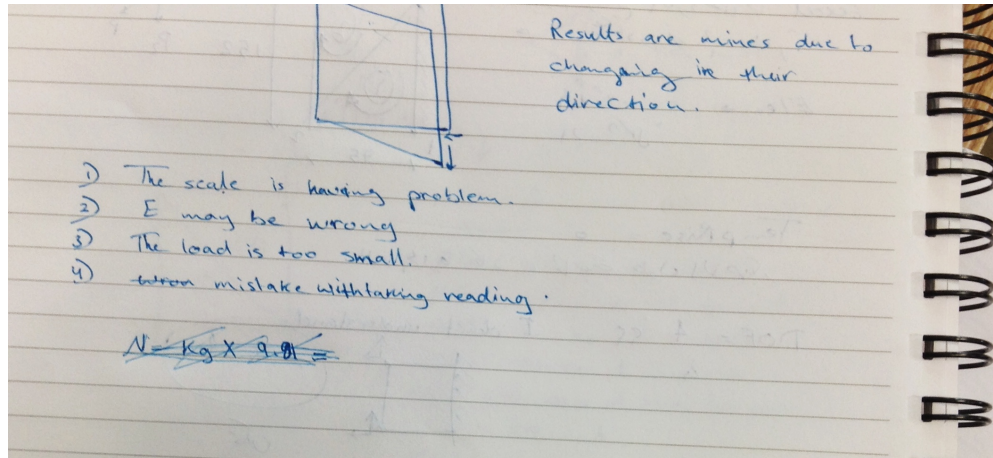 Results are mines due to
changing in their
direction.
1) The scale is having problem.
2) E may be wrong
3) The load is too small.
4) wron mistake with taking reading.
N = Kg X 9.81 =